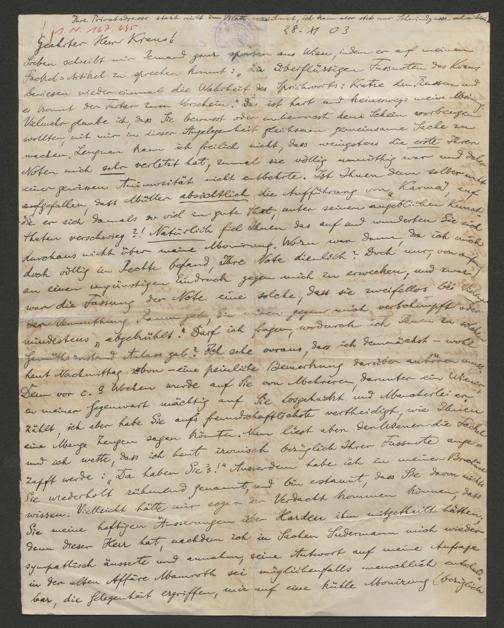 Ihre Privatadresse steht nicht im
I. N. 167.635
28. XI 03
Geehrter Herr Kraus!
Soeben schreibt mir Jemand ganz spontan aus Wien, indem er auf meinen
Fackel-Artikel zu sprechen kommt: „Die überflüssigen Fussnoten des Kraus
beweisen wieder einmal die Wahrheit des Sprichworts: Kratze den Russen und
es kommt der Tartar zum Vorschein." Das ist hart und keineswegs meine Meinung.
Vielmehr glaube ich, dass Sie bewusst oder unbewusst dem Schein vorbeugen
wollten, mit mir in dieser Angelegenheit gleichsam gemeinsame Sache zu
machen. Leugnen kann ich freilich nicht, dass wenigstens die erste Ihrer
Noten mich sehr verletzt hat, zumal sie völlig unnöthig war und daher
einer gewissen Animosität nicht entbehrte. Ist Ihnen denn selber nicht
aufgefallen, dass Müller absichtlich die Aufführung von „Karma", auf
die er sich damals so viel zu gute that, unter seinen angeblichen
verschwieg?! Natürlich fiel Ihnen das auf und wunderten Sie sich
durchaus nicht über meine Monirung. Wozu war denn, da ich mich
doch völlig im Rechte befand, Ihre Note dienlich? Doch nur, von
an einen ungünstigen Eindruck gegen mich zu erwecken, und zwar
war die Fassung der Note eine solche, dass sie zweifellos bei
der Vermuthung Raum gebe, Sie würden gegen mich verschnupft oder
mindestens „abgekühlt". Darf ich fragen, wodurch ich Ihnen zu solchem
Gemüthszustand Anlass gab? Ich sehe voraus, dass ich demnächst – wohl
heut Nachmittag schon – eine peinliche Bemerkung darüber anhören muss.
Denn vor c. 3 Wochen wurde auf Sie von Mehreren, darunter ein Wiener,
in meiner Gegenwart mächtig auf Sie losgehackt und Mancherlei er-
zählt, ich aber habe Sie aufs freundschaftlichste vertheidigt, wie Ihnen
eine Menge Zeugen sagen könnten. Nun liest aber der Wiener die Fackel
und ich wette, dass ich heut ironisch bezüglich Ihrer Fussnote ange-
zapft werde: „Da haben Sie's!" Ausserdem habe ich in meiner Broschüre
Sie wiederholt rühmend genannt, und bin erstaunt, dass Sie davon nichts
wissen. Vielleicht hätte mir sogar der Verdacht kommen können, dass
Sie meine heftigen Äusserungen über Harden ihm mitgetheilt hätten,
denn dieser Herr hat, nachdem ich in Sachen Sudermann mich wieder
sympathisch äusserte und annahm, seine Antwort auf meine Anfrage
in der alten Affäre Mamroth sei möglichenfalls menschlich
bar, die Gelegenheit ergriffen, mir auf eine kühle Monirung (bezüglich